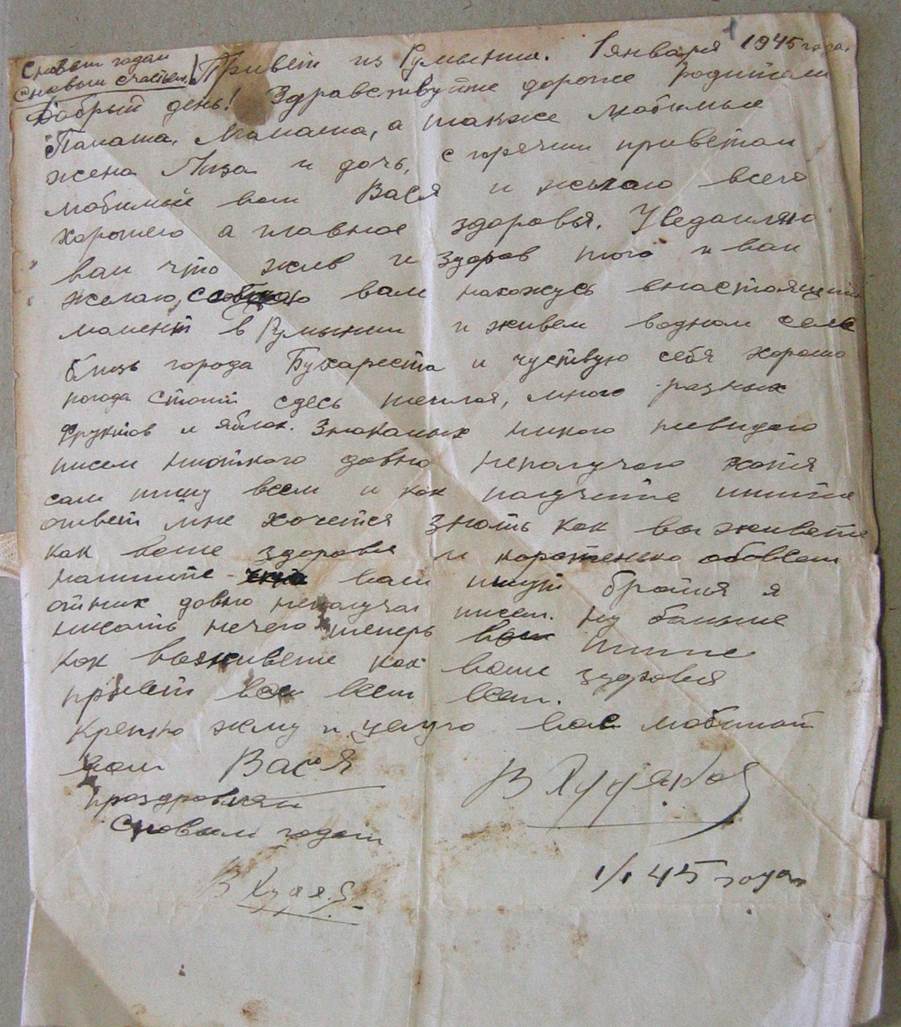 С новым годом
с новым счастьем!
Привет из Румынии. 1 января 1945 года.
Добрый день! Здравствуйте дорогие родители
Папаша, Мамаша, а также любимые
жена Лиза и дочь, с горячим приветом
любимый ваш Вася и желаю всего
хорошего а главное здоровья. Уведомляю
вам что жив и здоров того и вам
желаю, сообщаю вам нахожусь внастоящий
момент в Румынии и живем водном селе
близь города Бухареста и чуствую себя хорошо
погода стоит сдесь теплая, много разных
фруктов и яблок. Знакомых никого невидаю
писем ниоткого довно неполучаю хотя
сам пишу всем и как получите пишите
ответ мне хочется знать как вы живете
как ваше здоровя и коротенько обовсем
напишите вам пишут братья я
отних довно неполучал писем. Ну больше
писать нечего теперь пишите
как выживете как ваше здоровя
привет всем всем.
Крепко жму и целую вас любимой
ваш Вася
проздровляю
Сновым годом
В Худяков
1/I 45 года